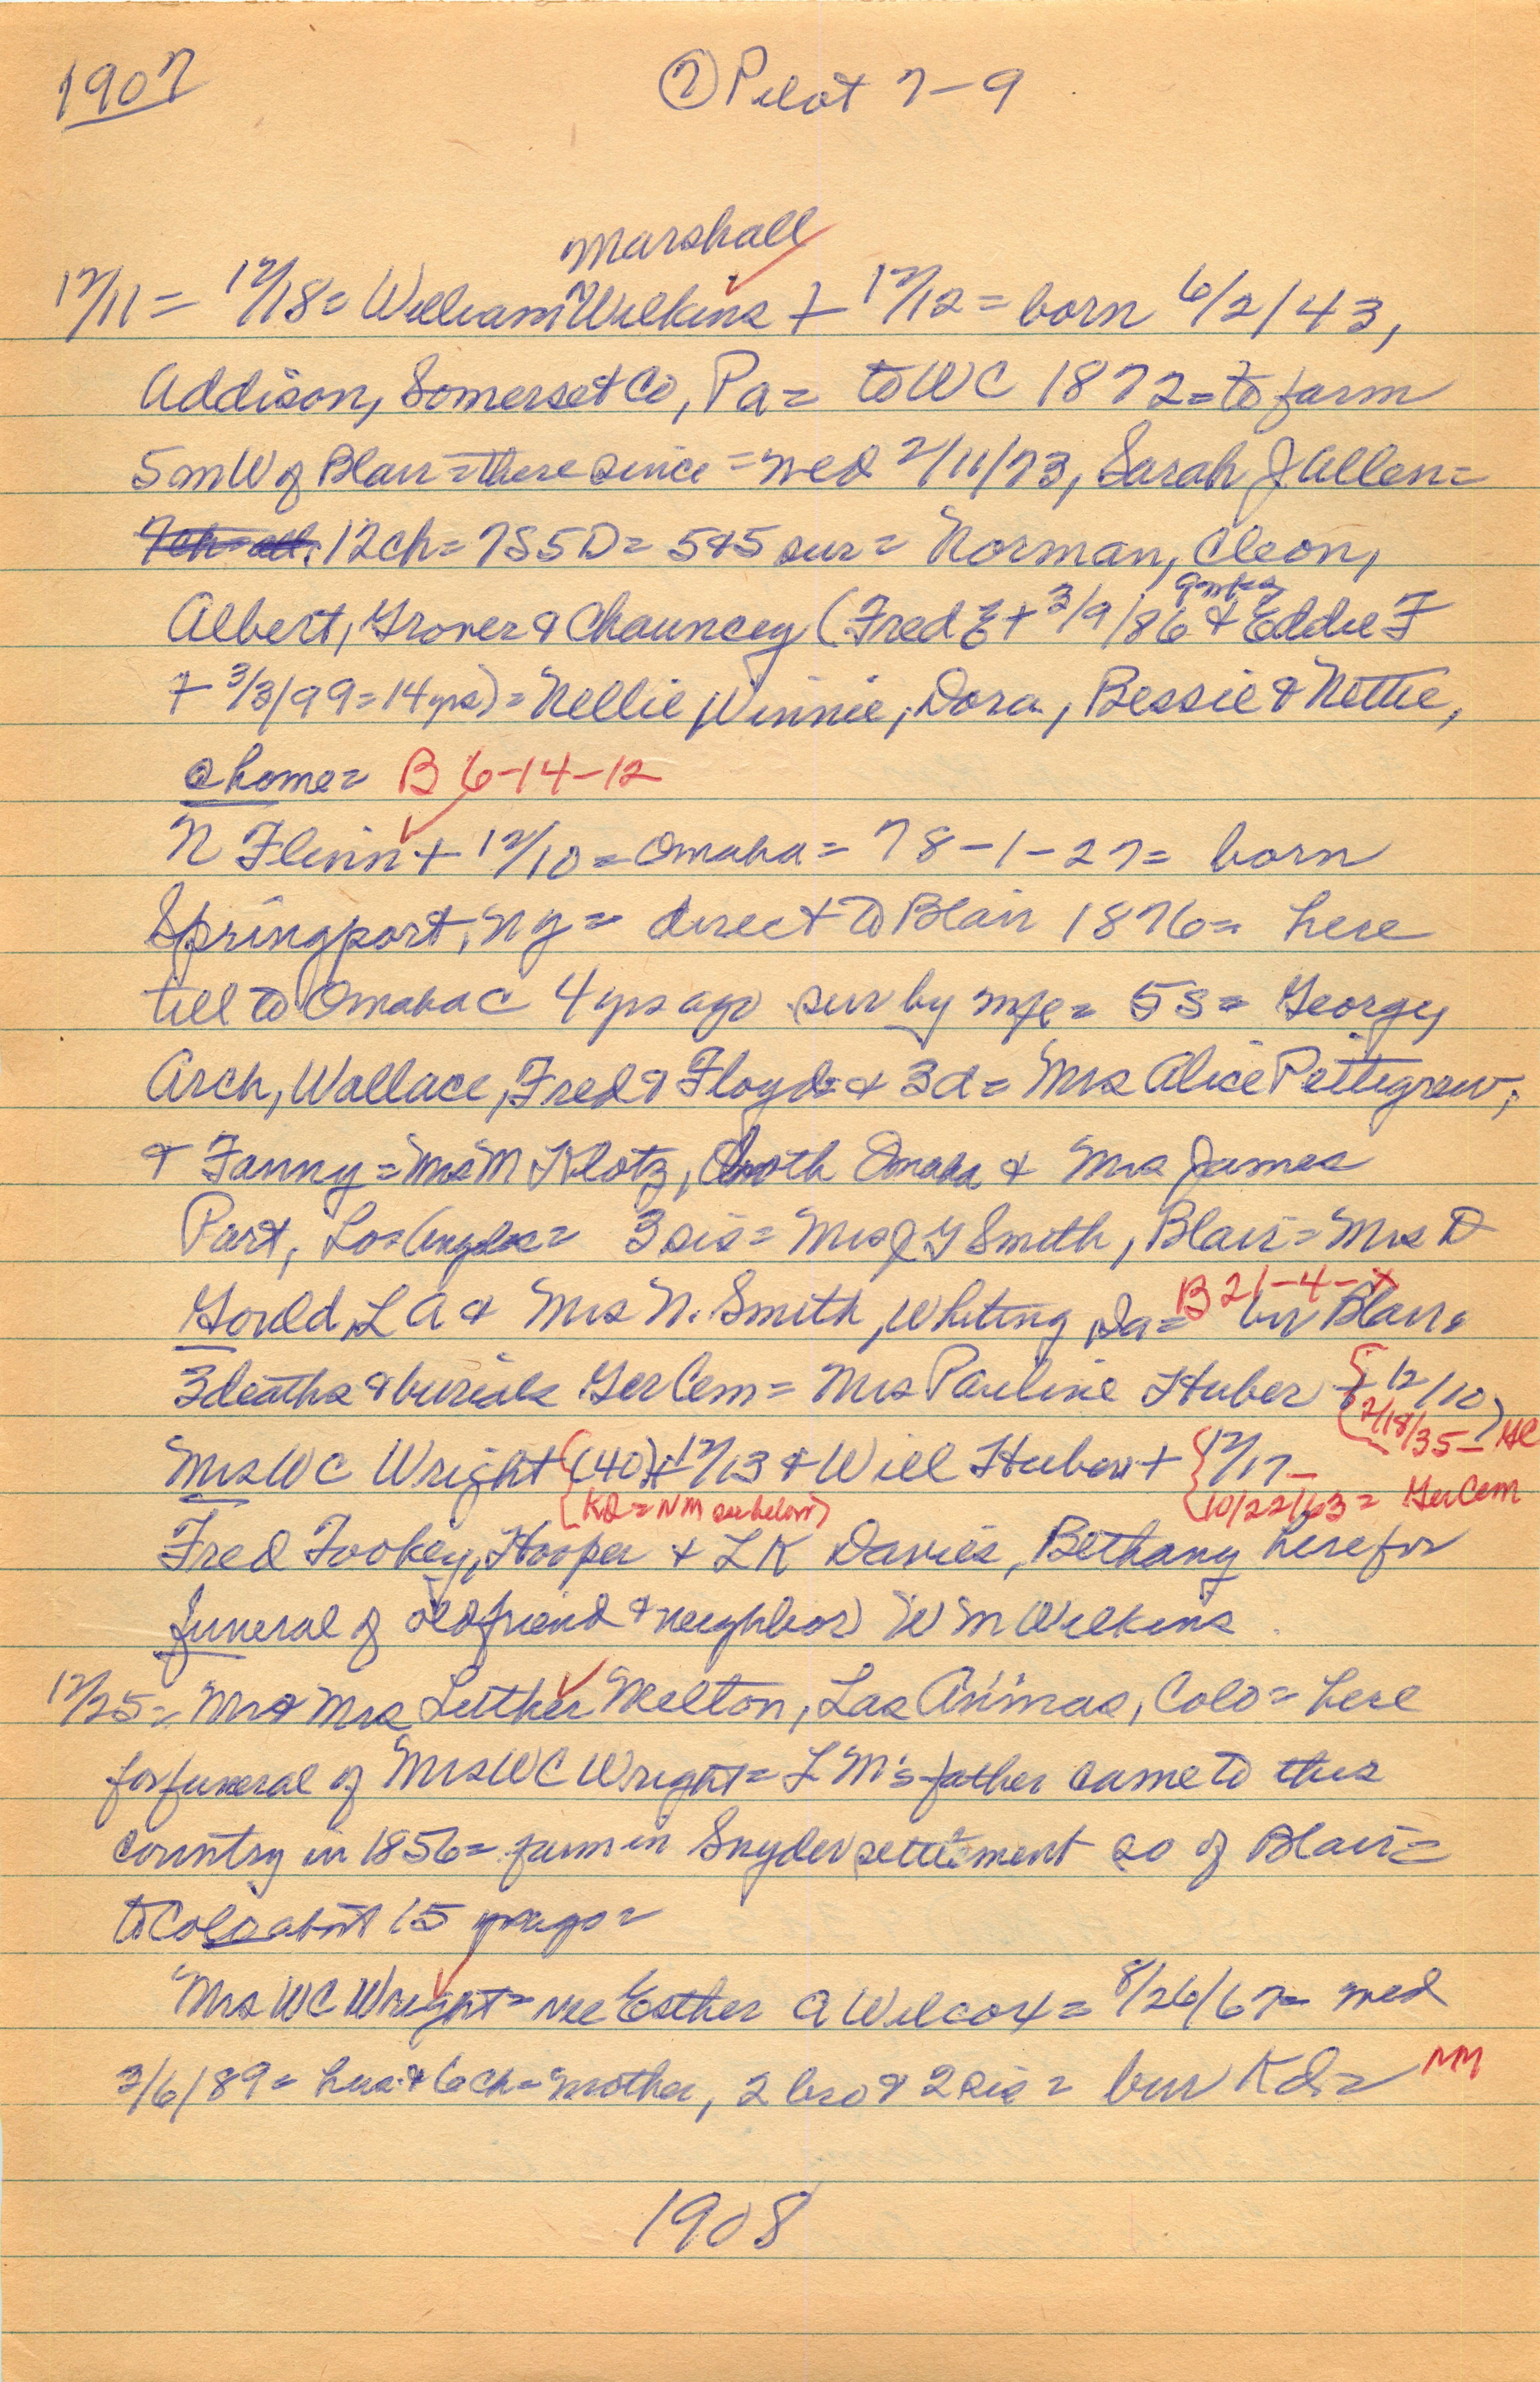 1907
⑦ Pilot 7-9
Marshall
12/11 = 12/18 = William ^ Wilkins + 12/12 = born 6/2/43,
Addison, Somerset Co, Pa = to WC 1872 = to farm
5 m W of Blair = there since = med 2/11/73, Sarah J Allen =
12 ch = 7S 5D = 5&5 sur = Norman, Cleon,
Albert, Grover & Chauncey (Fred E + 3/9/86 & Eddie F
+ 3/3/99 = 14 yrs) = Nellie, Winnie, Dora, Bessie & Nettie,
@ home = B 6-14-12
N Flinn + 12/10 = Omaha = 78-1-27 = born
Springport, NY = direct to Blair 1876 = here
till to Omaha C 4 yrs ago sur by wife = 5S = George,
Arch, Wallace, Fred & Floyd = & 3d = Mrs Alice Pettigrew,
& Fanny = Mrs M Klotz, South Omaha & Mrs James
Part, Los Angeles = 3 sis = Mrs J Y Smith, Blair = Mrs D
Gould, LA & Mrs N. Smith, Whiting, Ia = bur Blair =
B 21-4-
3 deaths & burials Ger Cem = Mrs Pauline Huber { + 12/10
(2/18/35 - GC
Mrs WC Wright (40) + 12/13 & Will Huber + { 12/17 -
{KD = NM see below) {10/22/63 = Ger Cem
Fred Fookey, Hooper & LK Davies, Bethany here for
funeral of old friend & neighbor Wm Wilkins.
12/25 = Mr & Mrs Luther Melton, Las Animas, Colo = here
for funeral of Mrs WC Wright = LM's father came to this
country in 1856 = farm in Snyder settlement so of Blair =
to Colo about 15 yrs ago =
Mrs WC Wright = nee Esther A Wilcox = 8/26/67 = med
2/6/89 = hus & 6 ch = mother, 2 bro & 2 sis = bur KD = NM
1908